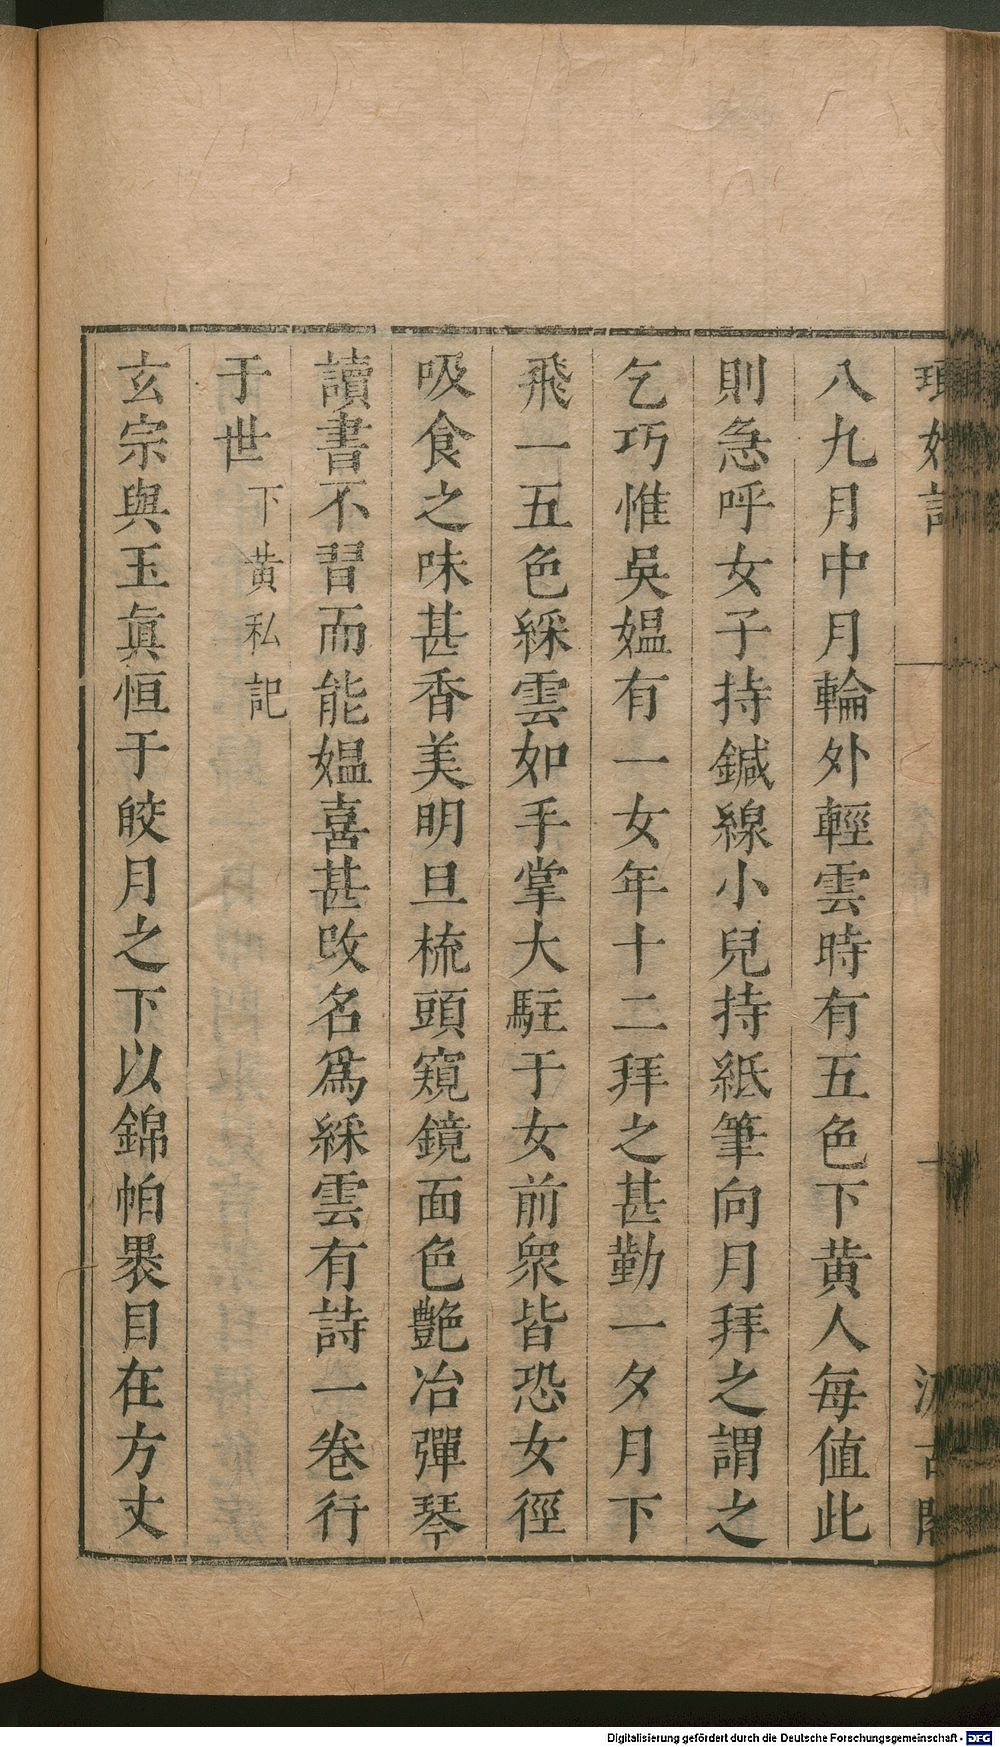 八九月中月輪外輕雲時有五色下黄人每值此
則急呼女子持鍼線小兒持紙筆向月拜之謂之
乞巧惟吳媼有一女年十二拜之甚勤一夕月下
飛一五色綵雲如手掌大駐于女前衆皆恐女徑
吸食之味甚香美明旦梳頭窺鏡面色艶冶彈琴
讀書不習而能媼喜甚攺名爲綵雲有詩一卷行
于世下黄私記
玄宗與玉眞恒于皎月之下以錦帕褁目在方丈
Digitalisierung gefördert durch die Deutsche Forschungsgemeinschaft - DFG